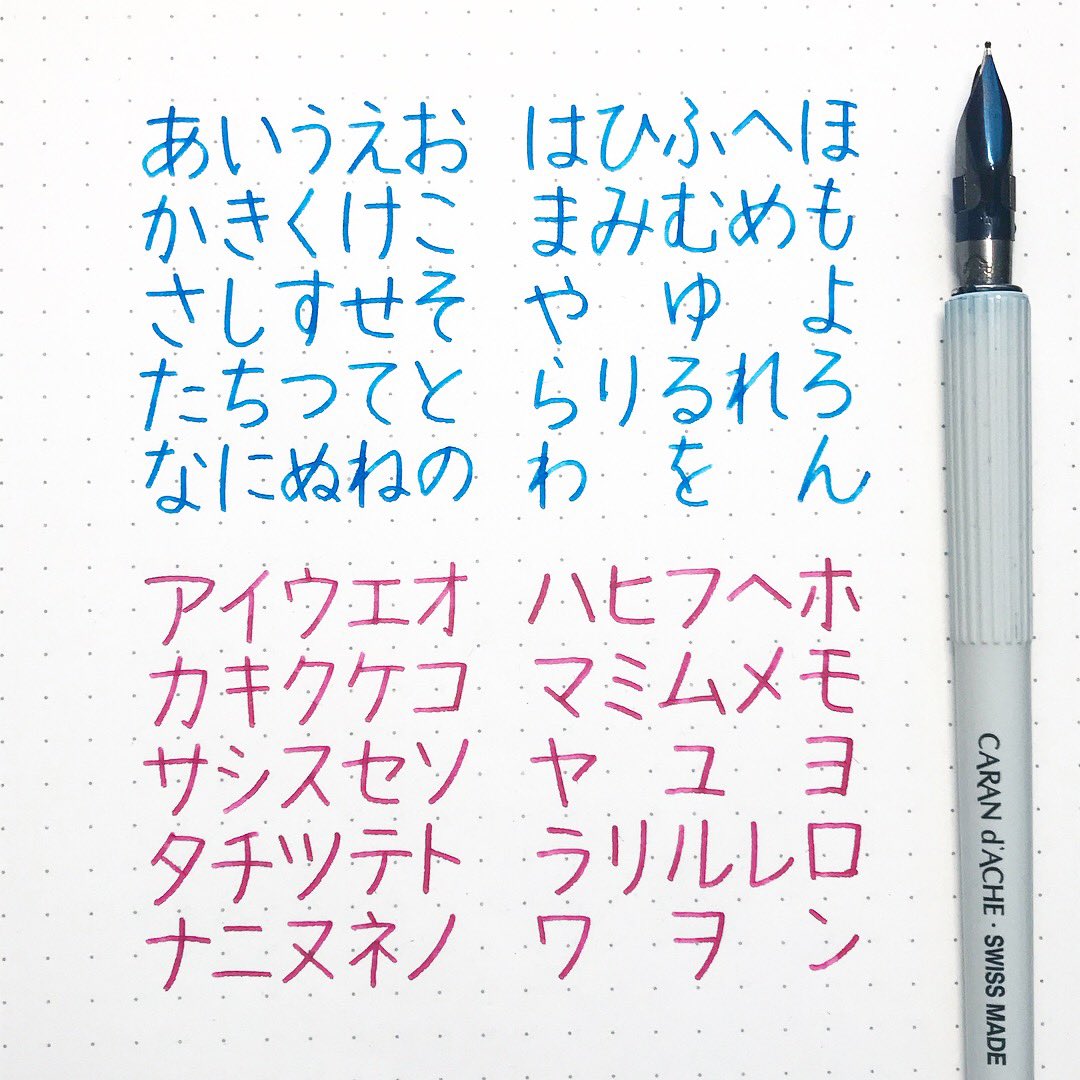 あいうえお はひふへほ
かきくけこ まみむめも
さしすせそ や ゆ よ
たちつてと らりるれろ
なにぬねの わ を ん
アイウエオ ハヒフヘホ
カキクケコ マミムメモ
サシスセソ ヤ ユ ヨ
タチツテト ラリルレロ
ナニヌネノ ワ ヲ ン
CARAN d'ACHE · SWISS MADE